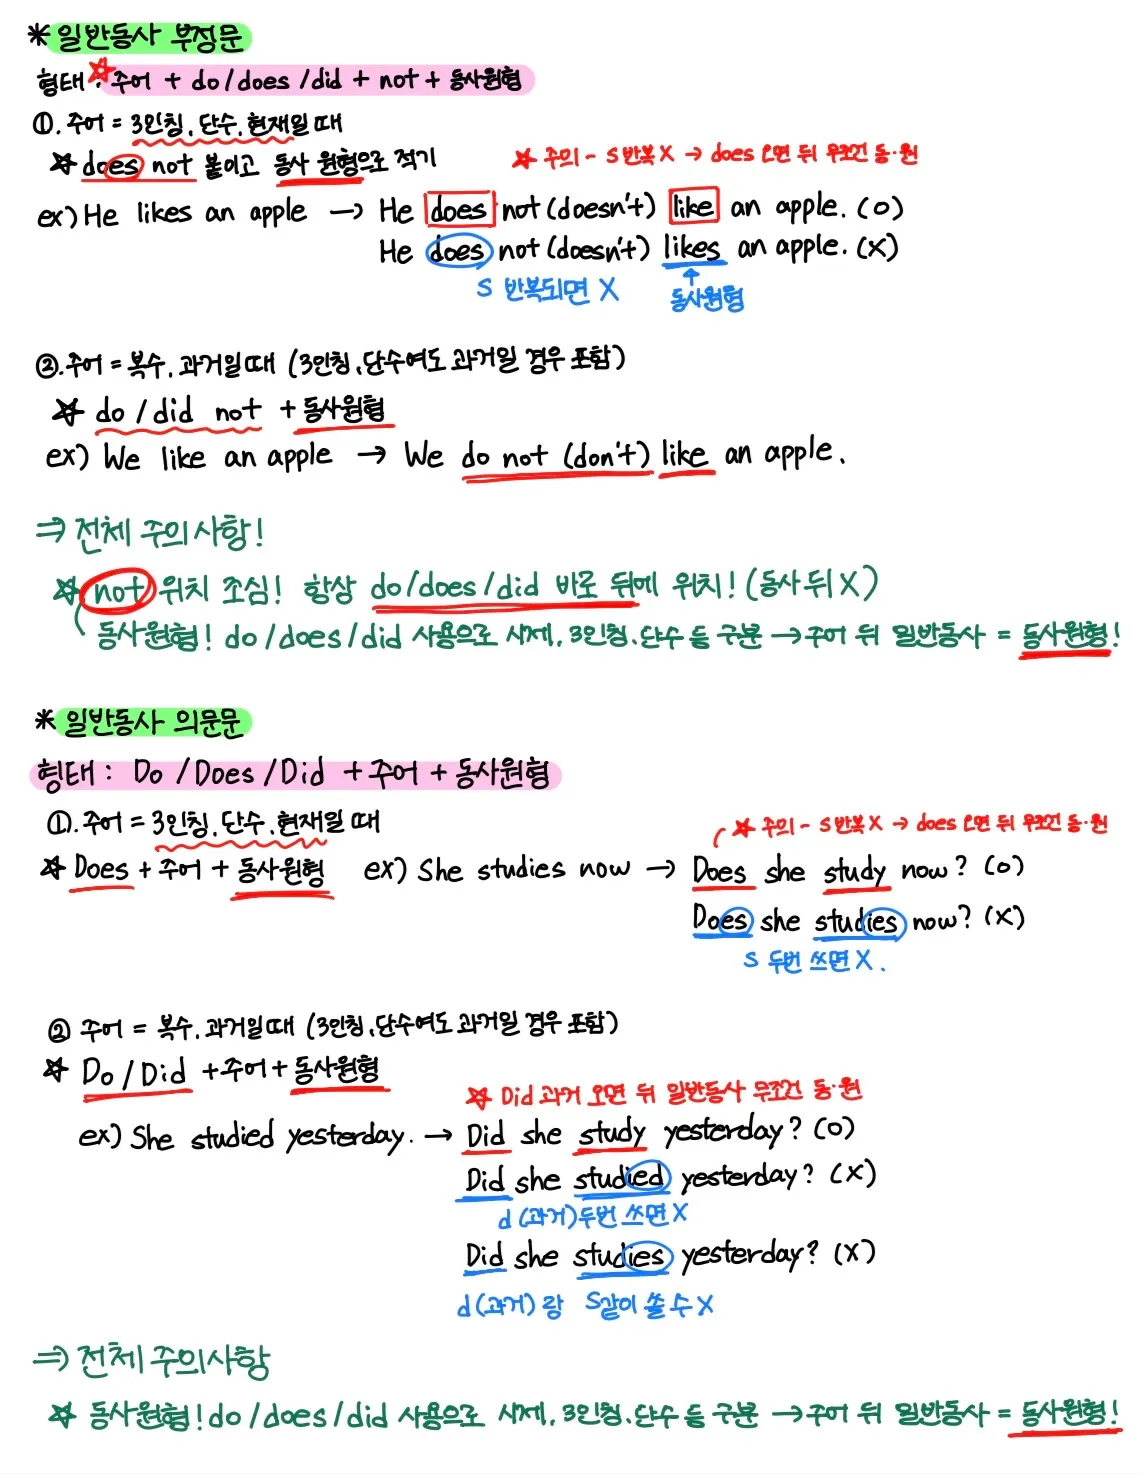 * 일반동사 부정문
형태 : ☆ 주어 + do/does/did + not + 동사원형
①. 주어 = 3인칭, 단수, 현재일 때
☆ does not 붙이고 동사 원형으로 적기
☆ 주의 - S 반복 X → does 오면 뒤 무조건 동·원
ex) He likes an apple → He does not (doesn't) like an apple. (O)
He does not (doesn't) likes an apple. (X)
S 반복되면 X
↑
동사원형
②. 주어 = 복수, 과거일 때 (3인칭, 단수여도 과거일 경우 포함)
☆ do / did not + 동사원형
ex) We like an apple → We do not (don't) like an apple.
⇒ 전체 주의사항!
☆ not 위치 조심! 항상 do/does/did 바로 뒤에 위치! (동사 뒤 X)
동사원형! do/does/did 사용으로 시제, 3인칭, 단수 등 구분 → 주어 뒤 일반동사 = 동사원형!
* 일반동사 의문문
형태 : Do / Does / Did + 주어 + 동사원형
①. 주어 = 3인칭, 단수, 현재일 때
☆ 주의 - S 반복 X → does 오면 뒤 무조건 동·원
☆ Does + 주어 + 동사원형 ex) She studies now → Does she study now? (O)
Does she studies now? (X)
S 두번 쓰면 X.
② 주어 = 복수, 과거일 때 (3인칭, 단수여도 과거일 경우 포함)
☆ Do / Did + 주어 + 동사원형
☆ Did 과거 오면 뒤 일반동사 무조건 동·원
ex) She studied yesterday. → Did she study yesterday? (O)
Did she studied yesterday? (X)
d (과거) 두번 쓰면 X
Did she studies yesterday? (X)
d (과거) 랑 S같이 쓸 수 X
⇒ 전체 주의사항
☆ 동사원형! do/does/did 사용으로 시제, 3인칭, 단수 등 구분 → 주어 뒤 일반동사 = 동사원형!